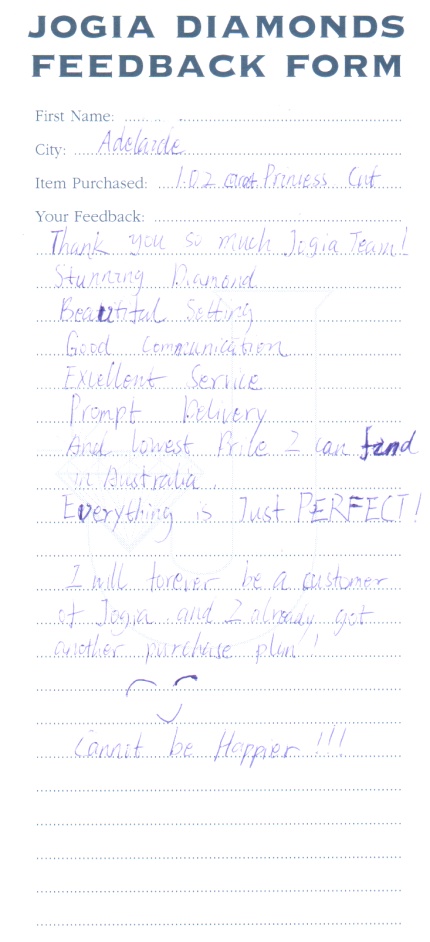 JOGIA DIAMONDS
FEEDBACK FORM
First Name:
City: Adelaide
Item Purchased: 1.02 carat Princess Cut
Your Feedback:
Thank you so much Jogia Team!
Stunning Diamond
Beautiful Setting
Good Communication
Excellent Service
Prompt Delivery
And lowest Price I can find
in Australia.
Everything is Just PERFECT!
I will forever be a customer
of Jogia and I already got
another purchase plan!
Cannot be Happier !!!